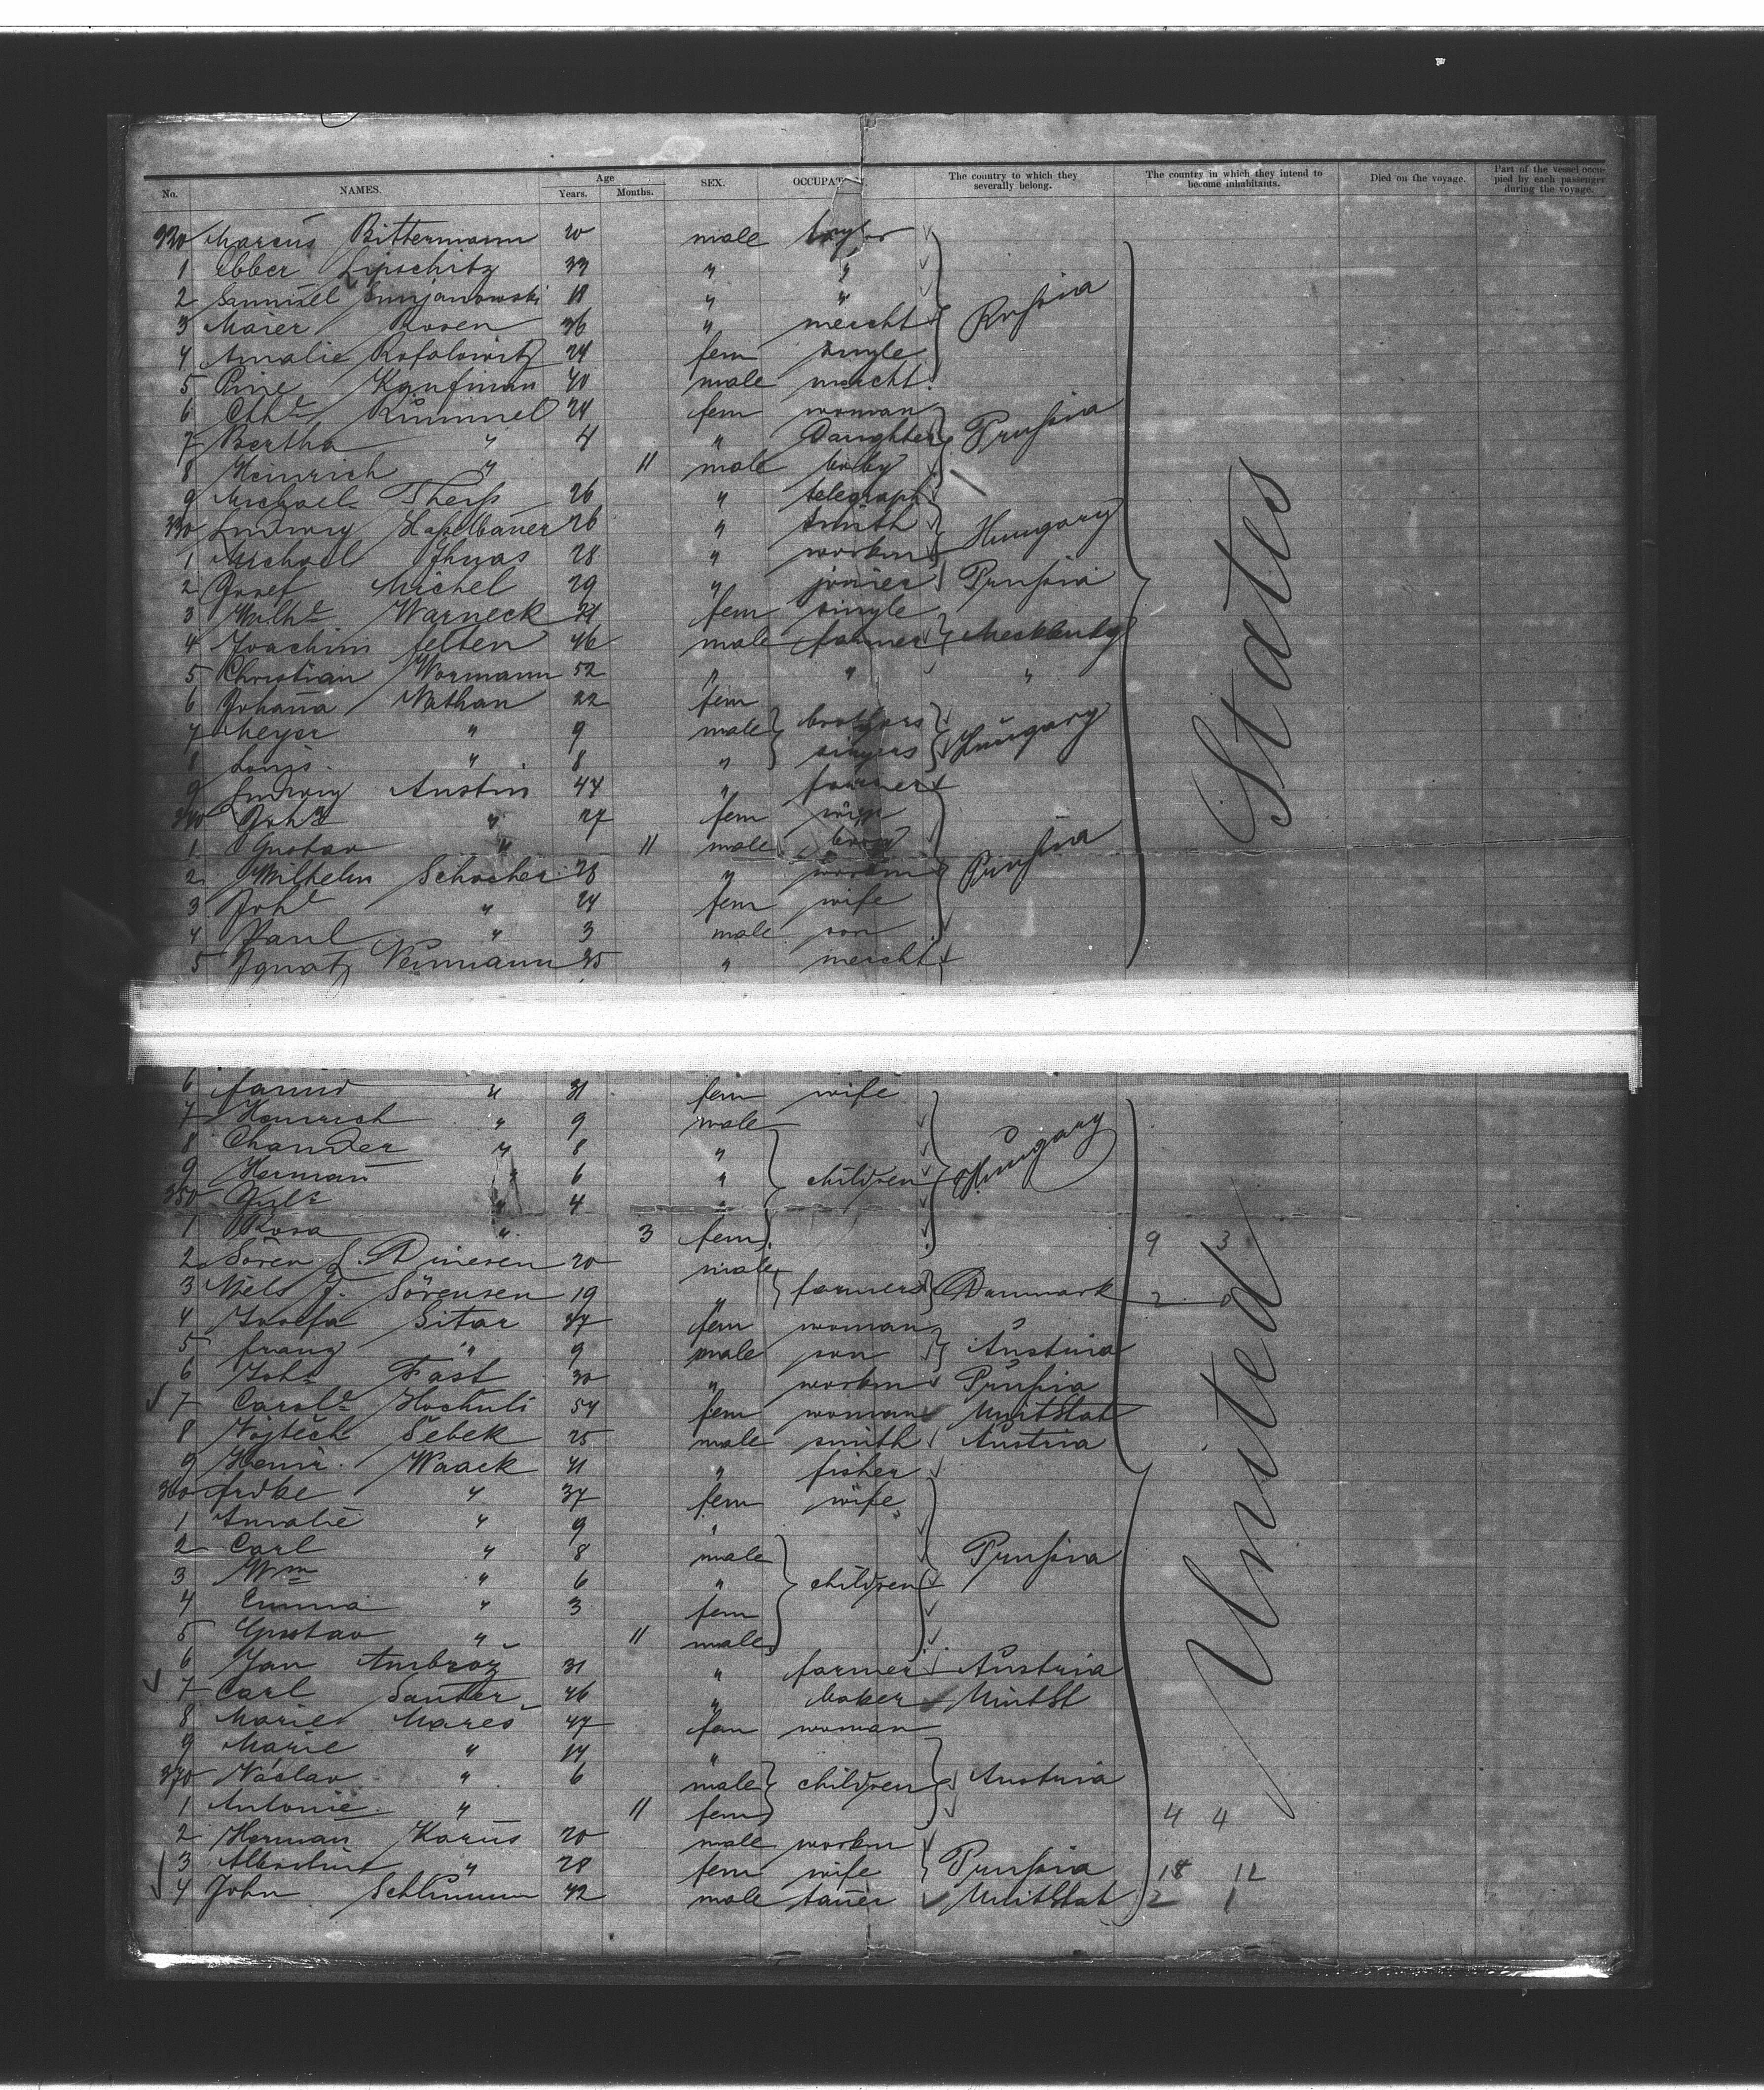 No. NAMES. Age Years. Months. SEX. OCCUPATION. The country to which they severally belong. The country in which they intend to become inhabitants. Died on the voyage. Part of the vessel occupied by each passenger during the voyage.
Marcus Bittermann 20 male taylor
1 Ebber Lipschitz 33 " "
2 Samuel Smyanowski 18 " "
3 Maier Rosen 36 " mercht Russia
4 Amalie Rafalowitz 24 fem single
5 Kaufman 40 male mercht
6 Cthe Kümmel 24 fem woman
7 Bertha " 4 " Daughter Prussia
8 Heinrich " 11 male baby
9 Michael Theiss 26 " telegraph
330 Ludwig Haselbauer 26 " smith Hungary
1 Michael 28 " workm
2 Josef Michel 29 " joiner Prussia
3 Wilhe Warneck 21 fem single
4 Joachim felten 46 male farmer Mecklenbg
5 Christian Wormann 52 " " "
6 Johana Nathan 22 fem
7 Meyer " 9 male brothers
8 Louis " 8 " singers Hungary
9 Ludwig Austin 44 " farmer
340 Johe " 27 fem wife
1 Gustav " 11 male baby
2 Wilhelm Schocher 28 " workm Prussia
3 Johe " 24 fem wife
4 Paul " 3 male son
5 Ignatz Neumann 35 " mercht
6 " 31 fem wife
7 Heinrich " 9 male
8 " 8 "
9 Herman " 6 " children Hungary
350 Jule " 4 "
1 Rosa " 3 fem 9 3
2 Sören L. Dinesen 20 male
3 Niels J. Sörensen 19 " farmers Danmark 2 0
4 Josefa Sitar 37 fem woman
5 franz " 9 male son Austria
6 Johs Fast 30 " workm Prussia
7 Carole Hochuli 54 fem woman UnitStat
8 Vojtěch Šebek 25 male smith Austria
9 Heinr. Waack 41 " fisher
360 frdke " 37 fem wife
1 Amalie " 9 "
2 Carl " 8 male Prussia
3 Wm " 6 " children
4 Emma " 3 fem
5 Gustav " 11 male
6 Jan Ambrož 31 " farmer Austria
7 Carl Sauter 46 " baker UnitSt
8 Marie Mareš 47 fem woman
9 Marie " 14 "
370 Václav " 6 male children Austria
1 Antonie " 11 fem 4 4
2 Herman Karus 20 male workm
3 Albertine " 28 fem wife Prussia 18 12
4 John 42 male UnitStat 2 1
United States